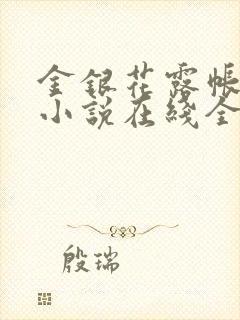 金銀花露帳
小說在綫全
殷瑞